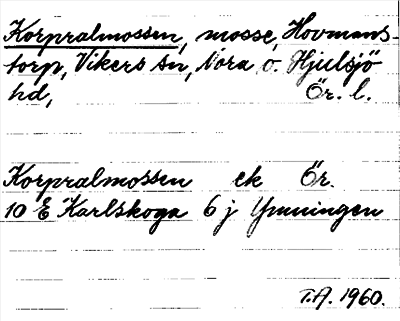 Korpralmossen, mosse, Hovmans-
torp, Vikers sn, Nora o. Hjulsjö
hd, Ör. l.
Korpralmossen ek Ör.
10 E Karlskoga 6 j Ymningen
T.A. 1960.